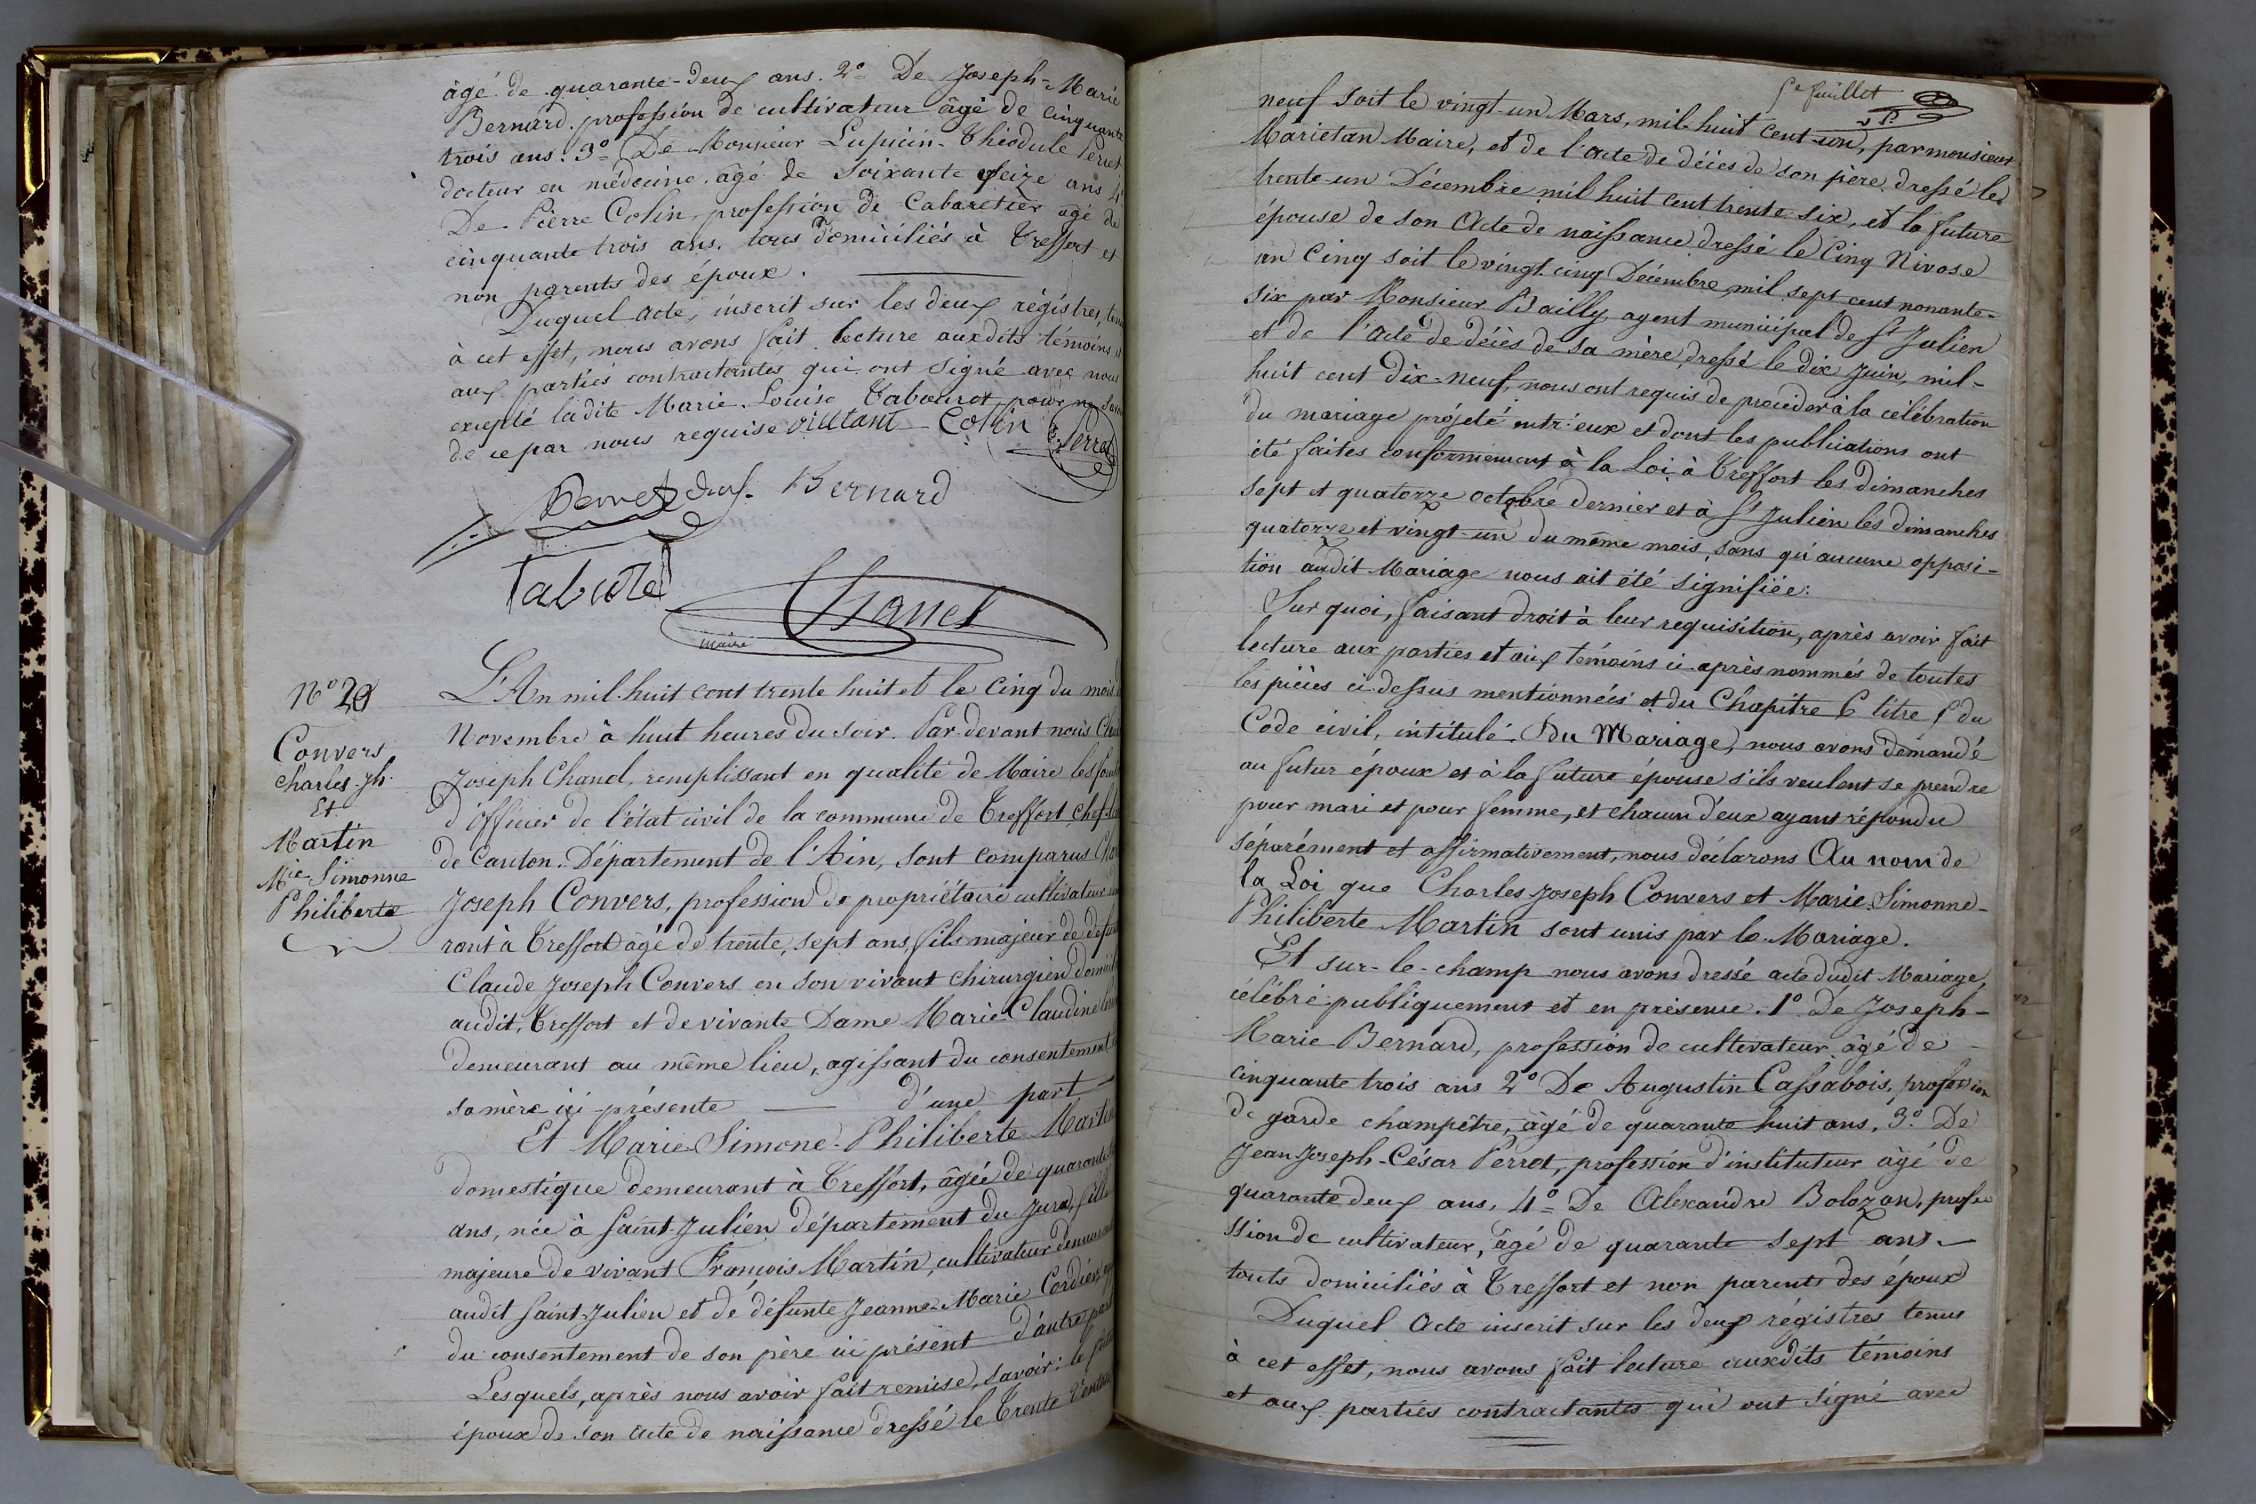 âgé de quarante-deux ans. 2° De Joseph-Marie
Bernard, profession de cultivateur âgé de cinquante
trois ans. 3° De Monsieur Lupicin-Théodule Perret
docteur en médecine, âgé de soixante seize ans 4°
De Pierre Colin, profession de Cabaretier âgé de
cinquante trois ans, tous domiciliés à Treffort et
non parents des époux.
Duquel acte, inscrit sur les deux régistres,
à cet effet, nous avons fait lecture auxdits témoins
aux parties contractantes qui ont signé avec nous
excepté ladite Marie-Louise Tabouret pour ne
de ce par nous requise Colin Perret
Perret Bernard
Chanel
maire
N° 20
Convers
Charles-Jh
Et
Martin
Mie Simonne
Philiberte
L'An mil-huit cent trente huit et le Cinq du mois
Novembre à huit heures du soir. Par devant nous
Joseph Chanel, remplissant en qualité de Maire les
d'officier de l'état civil de la commune de Treffort, chef
de Canton. Département de l'Ain, sont comparus
Joseph Convers, profession de propriétaire cultivateur
rant à Treffort âgé de trente, sept ans, fils majeur de
Claude Joseph Convers en son vivant chirurgien
audit, Treffort et de vivante Dame Marie-Claudine
demeurant au même lieu, agissant du consentement
sa mère ici présente d'une part
Et Marie-Simone-Philiberte Martin
domestique demeurant à Treffort, âgée de quarante
ans, née à Saint-Julien département du Jura, fille
majeure de vivant François Martin, cultivateur
audit Saint-Julien et de défunte Jeanne-Marie Cordier
du consentement de son père ici présent d'autre part
Lesquels, après nous avoir fait remise, savoir: le
époux de son acte de naissance dressé le Trente
5e feuillet
neuf soit le vingt-un Mars, mil-huit cent-un, par monsieur
Marietan Maire, et de l'acte de décès de son père, dressé le
trente-un Décembre mil huit cent trente six, et la future
épouse de son Acte de naissance dressé le Cinq Nivose
an Cinq soit le vingt-cinq Décembre mil sept cent nonante-
six par Monsieur Bailly agent municipal de St Julien
et de l'acte de décès de sa mère, dressé le dix Juin, mil-
huit cent dix-neuf, nous ont requis de procéder à la célébration
du mariage projeté entr'eux et dont les publications ont
été faites conformement à la Loi à Treffort les dimanches
sept et quatorze octobre dernier et à St Julien les dimanches
quatorze et vingt-un du même mois, sans qu'aucune opposi-
tion audit Mariage nous ait été signifiée:
Sur quoi, faisant droit à leur requisition, après avoir fait
lecture aux parties et aux témoins ci-après nommés de toutes
les pièces ci-dessus mentionnées et du Chapitre 6 titre 5 du
Code civil, intitulé. Du Mariage, nous avons demandé
au futur époux et à la future épouse s'ils veulent se prendre
pour mari et pour femme, et chacun d'eux ayant répondu
séparément et affirmativement, nous déclarons Au nom de
la Loi que Charles Joseph Convers et Marie-Simonne-
Philiberte Martin sont unis par le Mariage.
Et sur-le-champ nous avons dressé acte dudit Mariage,
célébré publiquement et en présence. 1° De Joseph-
Marie Bernard, profession de cultivateur âgé de
cinquante trois ans 2° De Augustin Cassabois, profession
de garde champêtre, âgé de quarante huit ans, 3° De
Jean-Joseph-César Perret, profession d'instituteur âgé de
quarante deux ans, 4° De Alexandre Bolozon, profe
ssion de cultivateur, âgé de quarante sept ans
touts domiciliés à Treffort et non parents des époux
Duquel Acte inscrit sur les deux régistres tenus
à cet effet, nous avons fait lecture auxdits témoins
et aux parties contractantes qui ont signé avec